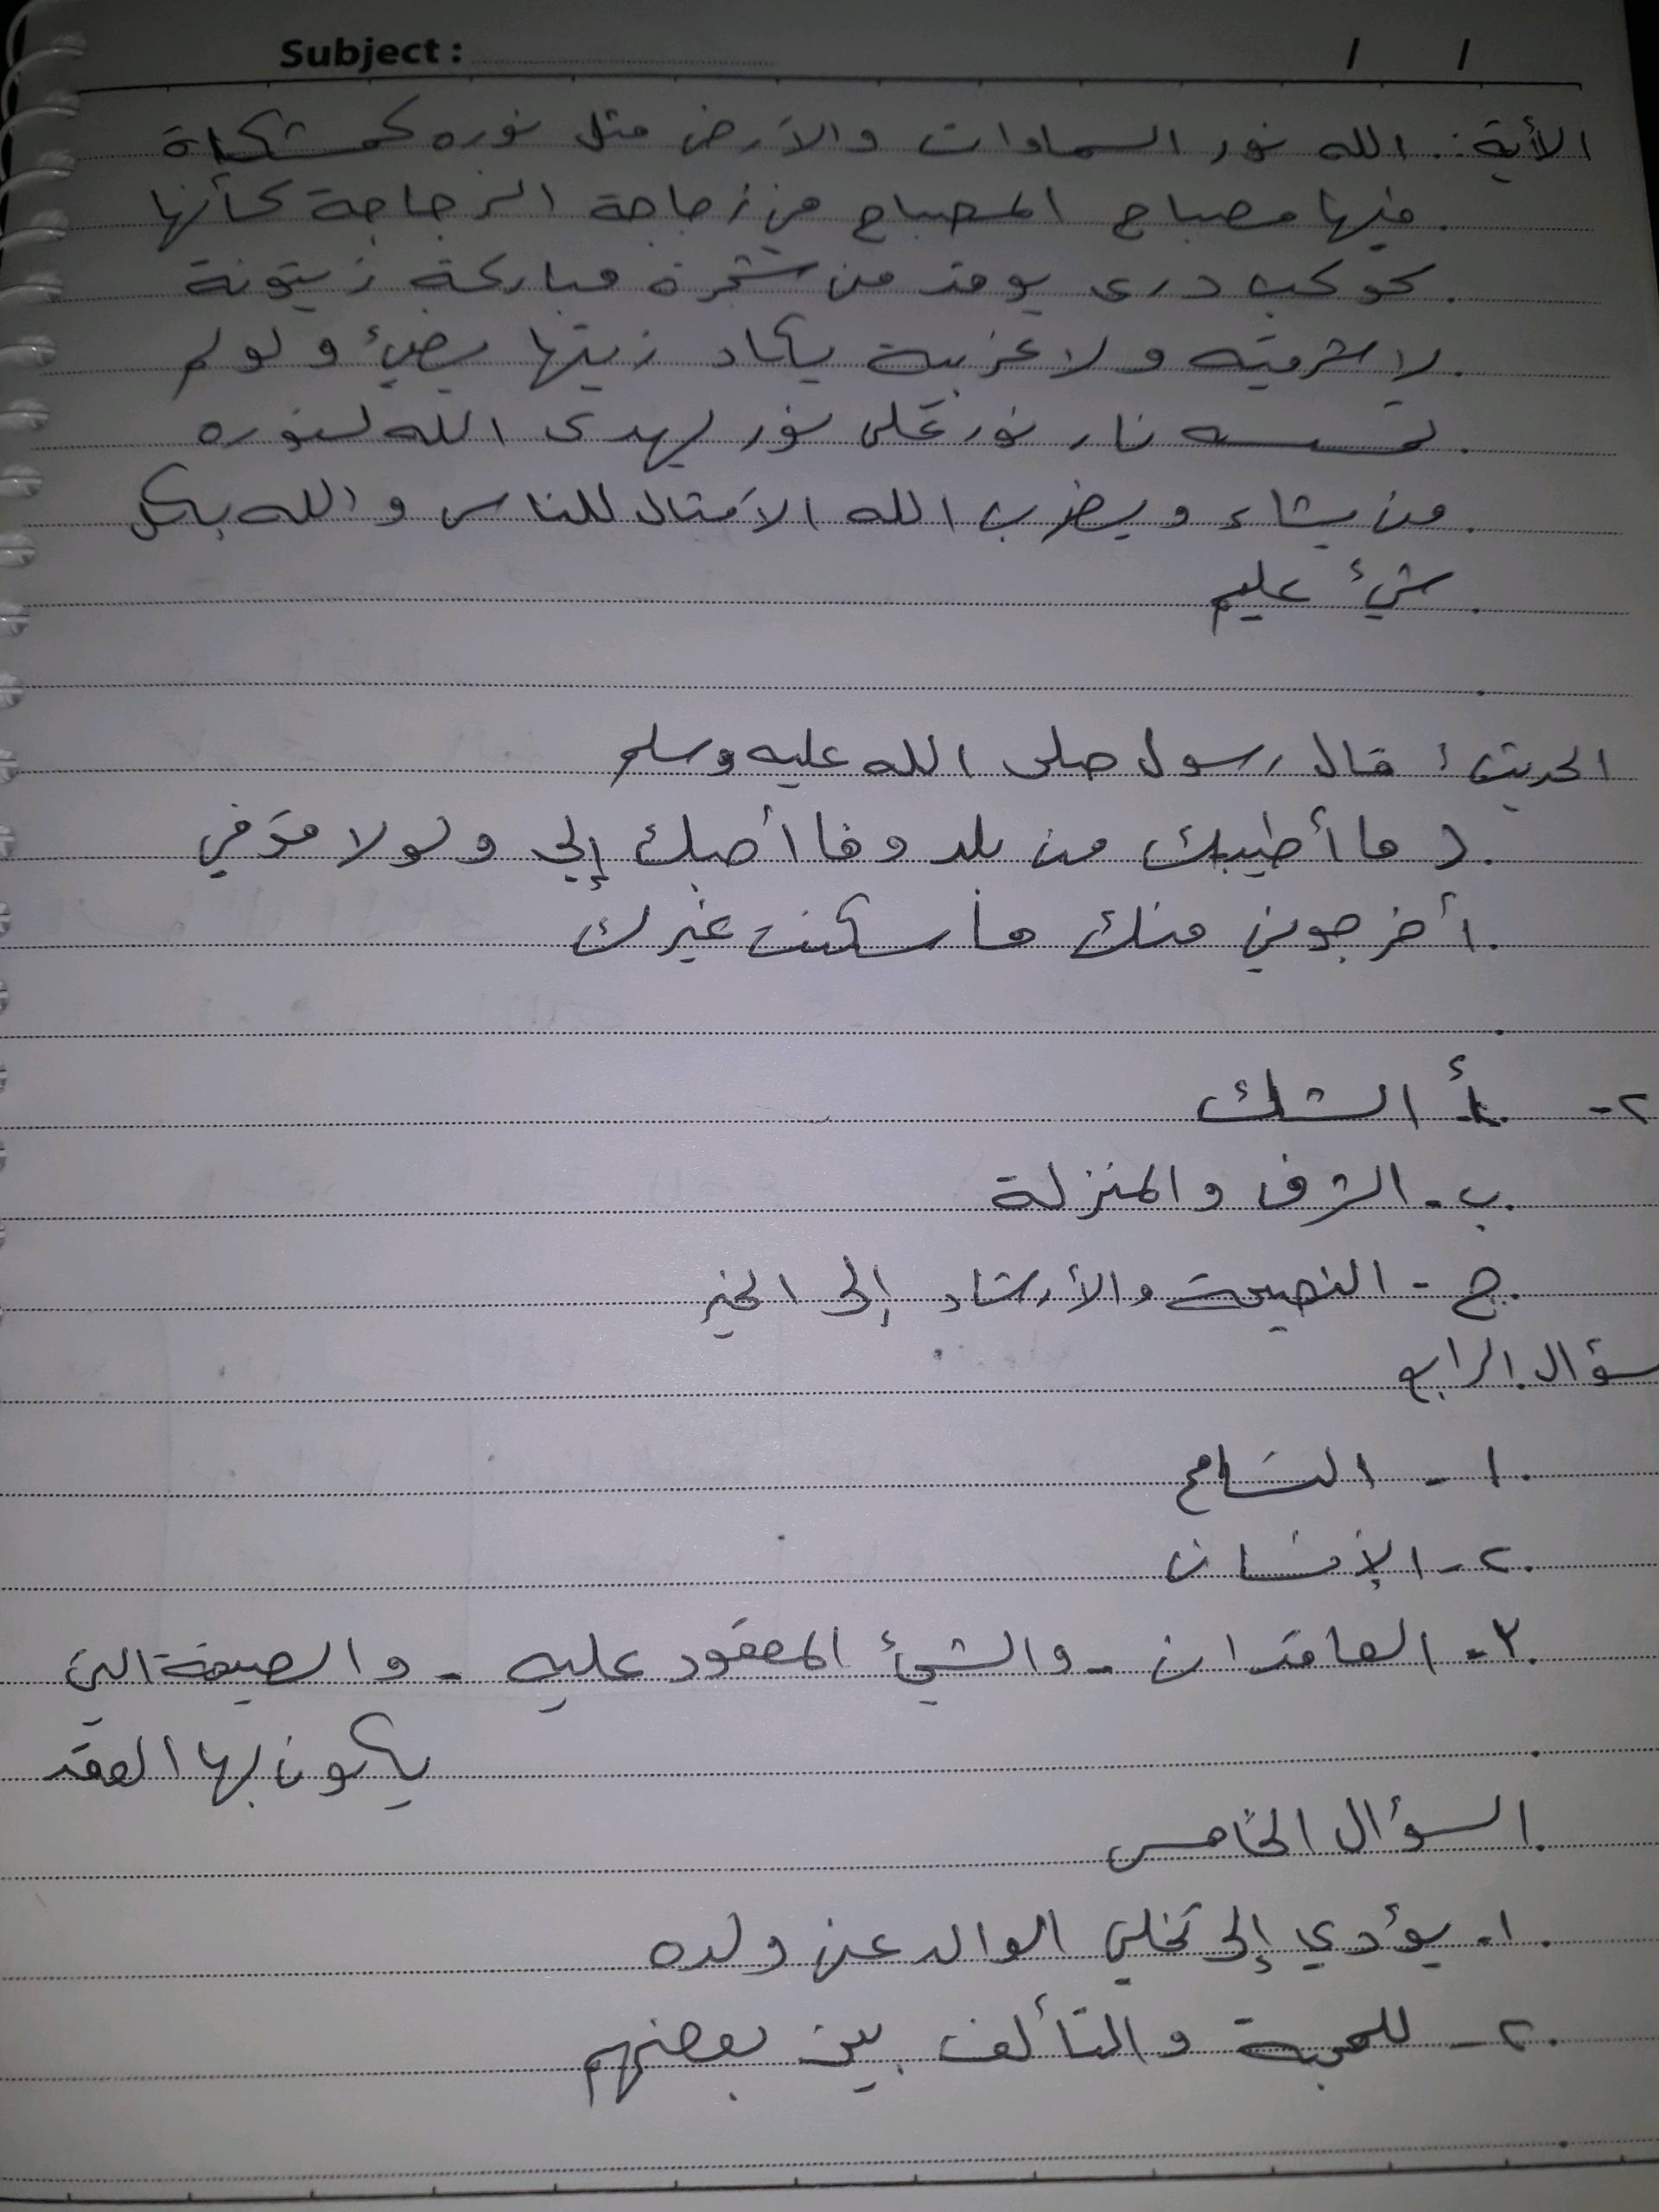 Subject :
/ /
الأية :. الله نور السماوات والأرض مثل نوره كمشكاة
فيها مصباح المصباح في زجاجة الزجاجة كأنها
كوكب درى يوقد من شجرة مباركة زيتونة
لا شرقيه ولا غربية يكاد زيتها يضئ ولو لم
تمسسه نار نور على نور يهدى الله لنوره
من يشاء ويضرب الله الأمثال للناس والله بكل
شئ عليم
الحديث : قال رسول صلى الله عليه وسلم
( ما أطيبك من بلد وما أحبك إلي ولولا قومي
أخرجوني منك ما سكنت غيرك
٢- أ الشك
ب - الشرف والمنزلة
ج - النصيحة والأرشاد إلى الخير
سؤال الرابع
١ - التسامح
٢ - الإنسان
٣ - العاقدان - والشئ المعقود عليه - والصيغة التي
يكون بها العقد
السؤال الخامس
١ - يؤدي إلى تخلي الوالد عن ولده
٢ - للمحبة والتألف بين بعضهم